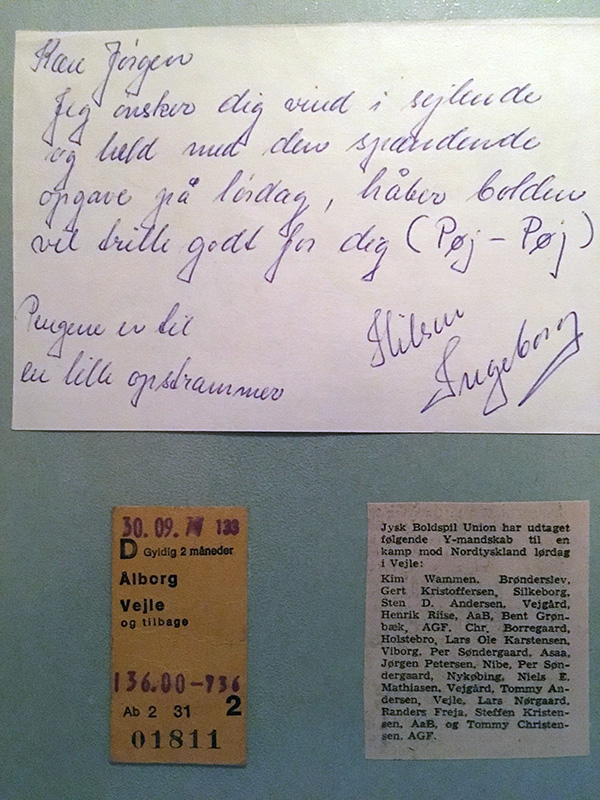 Kære Jörgen
Jeg ønsker dig vind i sejlende
og held med den spændende
opgave på lørdag, håber bolden
vil trille godt for dig (Pøj – Pøj)
Pengene er til
en lille opstrammer
Hilsen
Ingeborg
30.09. 133
D Gyldig 2 måneder
Ålborg
Vejle
og tilbage
136.00-736
Ab 2 31 2
01811
Jysk Boldspil Union har udtaget
følgende Y-mandskab til en
kamp mod Nordtyskland lørdag
i Vejle:
Kim Wammen, Brønderslev,
Gert Kristoffersen, Silkeborg,
Sten D. Andersen, Vejgård,
Henrik Riise, AaB, Bent Grøn-
bæk, AGF, Chr. Borregaard,
Holstebro, Lars Ole Karstensen,
Viborg, Per Søndergaard, Asaa,
Jørgen Petersen, Nibe, Per Søn-
dergaard, Nykøbing, Niels E.
Mathiasen, Vejgård, Tommy An-
dersen, Vejle, Lars Nørgaard,
Randers Freja, Steffen Kristen-
sen, AaB, og Tommy Christen-
sen, AGF.